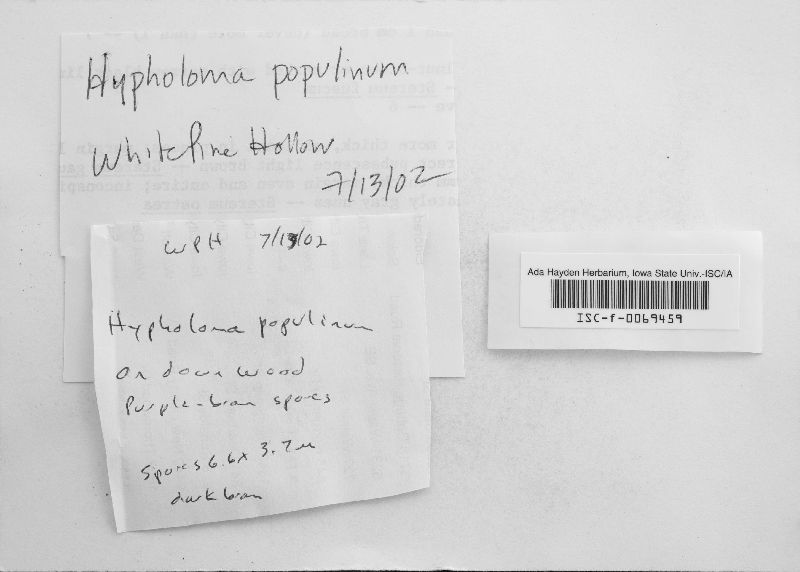 Hypholoma populinum
Whitepine Hollow
7/13/02
WPH 7/13/02
Hypholoma populinum
on down wood
Purple-brown spores
Spores 6.6 x 3.7 µ
dark brown
Ada Hayden Herbarium, Iowa State Univ.-ISC/IA
ISC-f-0069459